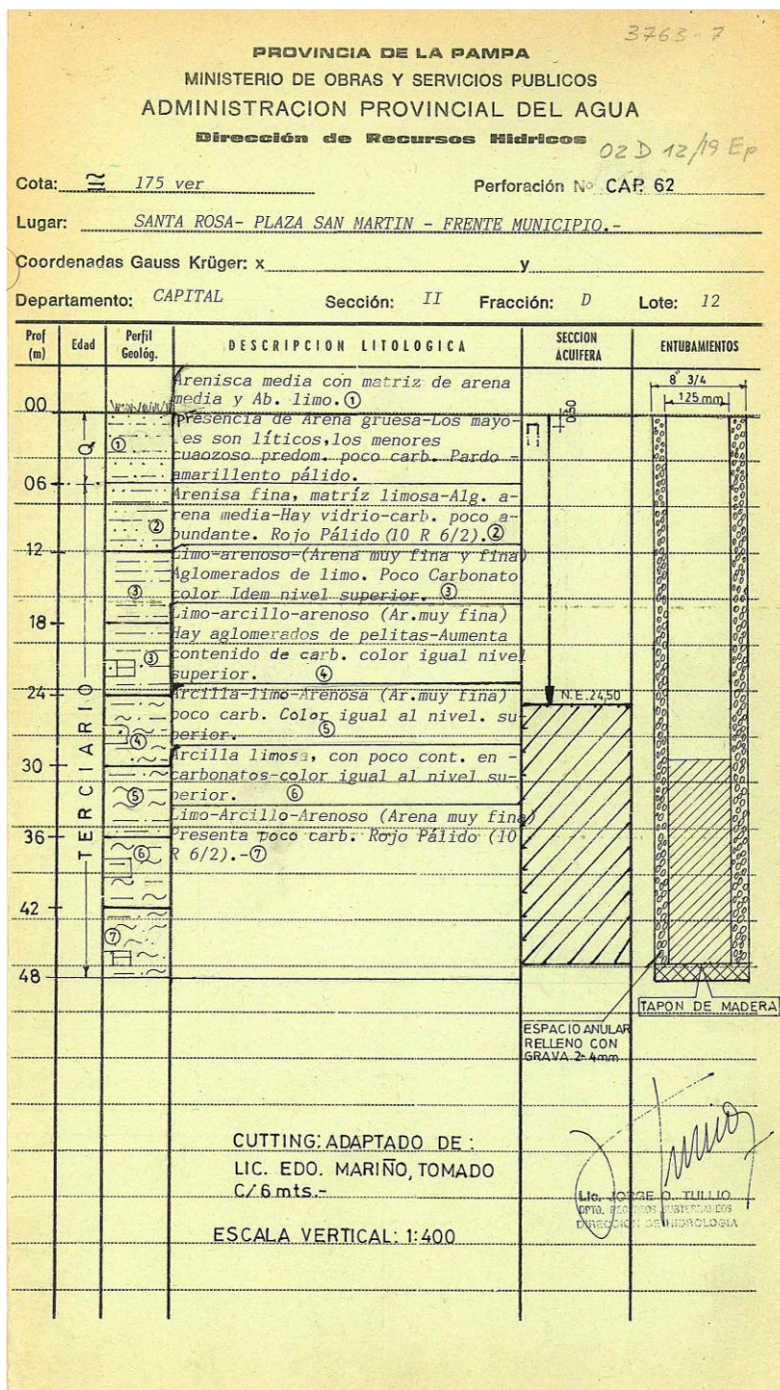 3763-7
PROVINCIA DE LA PAMPA
MINISTERIO DE OBRAS Y SERVICIOS PUBLICOS
ADMINISTRACION PROVINCIAL DEL AGUA
Dirección de Recursos Hídricos
02 D 12/19 Ep
Cota: ≅ 175 ver Perforación Nº CAP. 62
Lugar: SANTA ROSA- PLAZA SAN MARTIN - FRENTE MUNICIPIO.-
Coordenadas Gauss Krüger: x y
Departamento: CAPITAL Sección: II Fracción: D Lote: 12
Prof (m) Edad Perfil Geológ. DESCRIPCION LITOLOGICA SECCION ACUIFERA ENTUBAMIENTOS
Arenisca media con matriz de arena
media y Ab. limo. ①
Presencia de Arena gruesa-Los mayo-
res son líticos, los menores
cuaozoso predom. poco carb. Pardo -
amarillento pálido.
Arenisa fina, matríz limosa-Alg. a-
rena media-Hay vidrio-carb. poco a-
bundante. Rojo Pálido (10 R 6/2). ②
Limo-arenoso-(Arena muy fina y fina)
Aglomerados de limo. Poco Carbonato
color Idem nivel superior. ③
Limo-arcillo-arenoso (Ar.muy fina)
Hay aglomerados de pelitas-Aumenta
contenido de carb. color igual nivel
superior. ④
Arcilla-limo-Arenosa (Ar.muy fina)
poco carb. Color igual al nivel. su-
perior. ⑤
Arcilla limosa, con poco cont. en -
carbonatos-color igual al nivel su-
perior. ⑥
Limo-Arcillo-Arenoso (Arena muy fina)
Presenta poco carb. Rojo Pálido (10
R 6/2).-⑦
00
06
12
18
24
30
36
42
48
Q
TERCIARIO
①
②
③
③
④
⑤
⑥
⑦
0.50
N.E. 24,50
8" 3/4
125 mm
TAPON DE MADERA
ESPACIO ANULAR
RELLENO CON
GRAVA 2-4mm
CUTTING: ADAPTADO DE :
LIC. EDO. MARIÑO, TOMADO
C/6 mts.-
ESCALA VERTICAL: 1:400
Lic. JORGE O. TULLIO
DPTO. RECURSOS SUBTERRANEOS
DIRECCION DE HIDROLOGIA